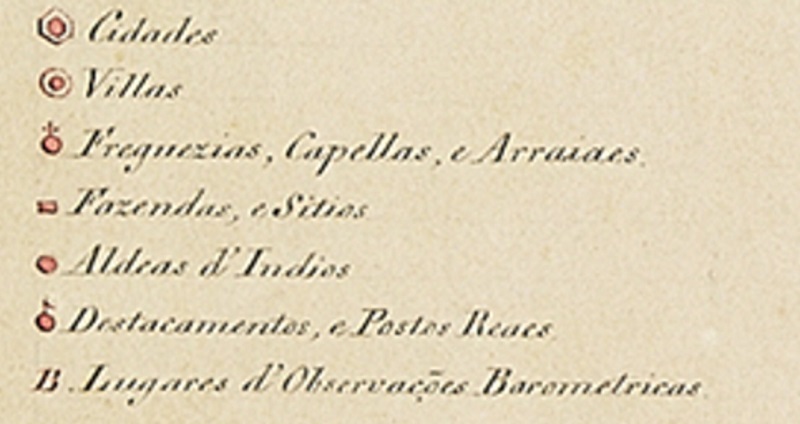 Cidades
Villas
Freguezias, Capellas, e Arraiaes.
Fazendas, e Sitios
Aldeas d'Indios
Destacamentos, e Postos Reaes
B Lugares d'Observações Barometricas.